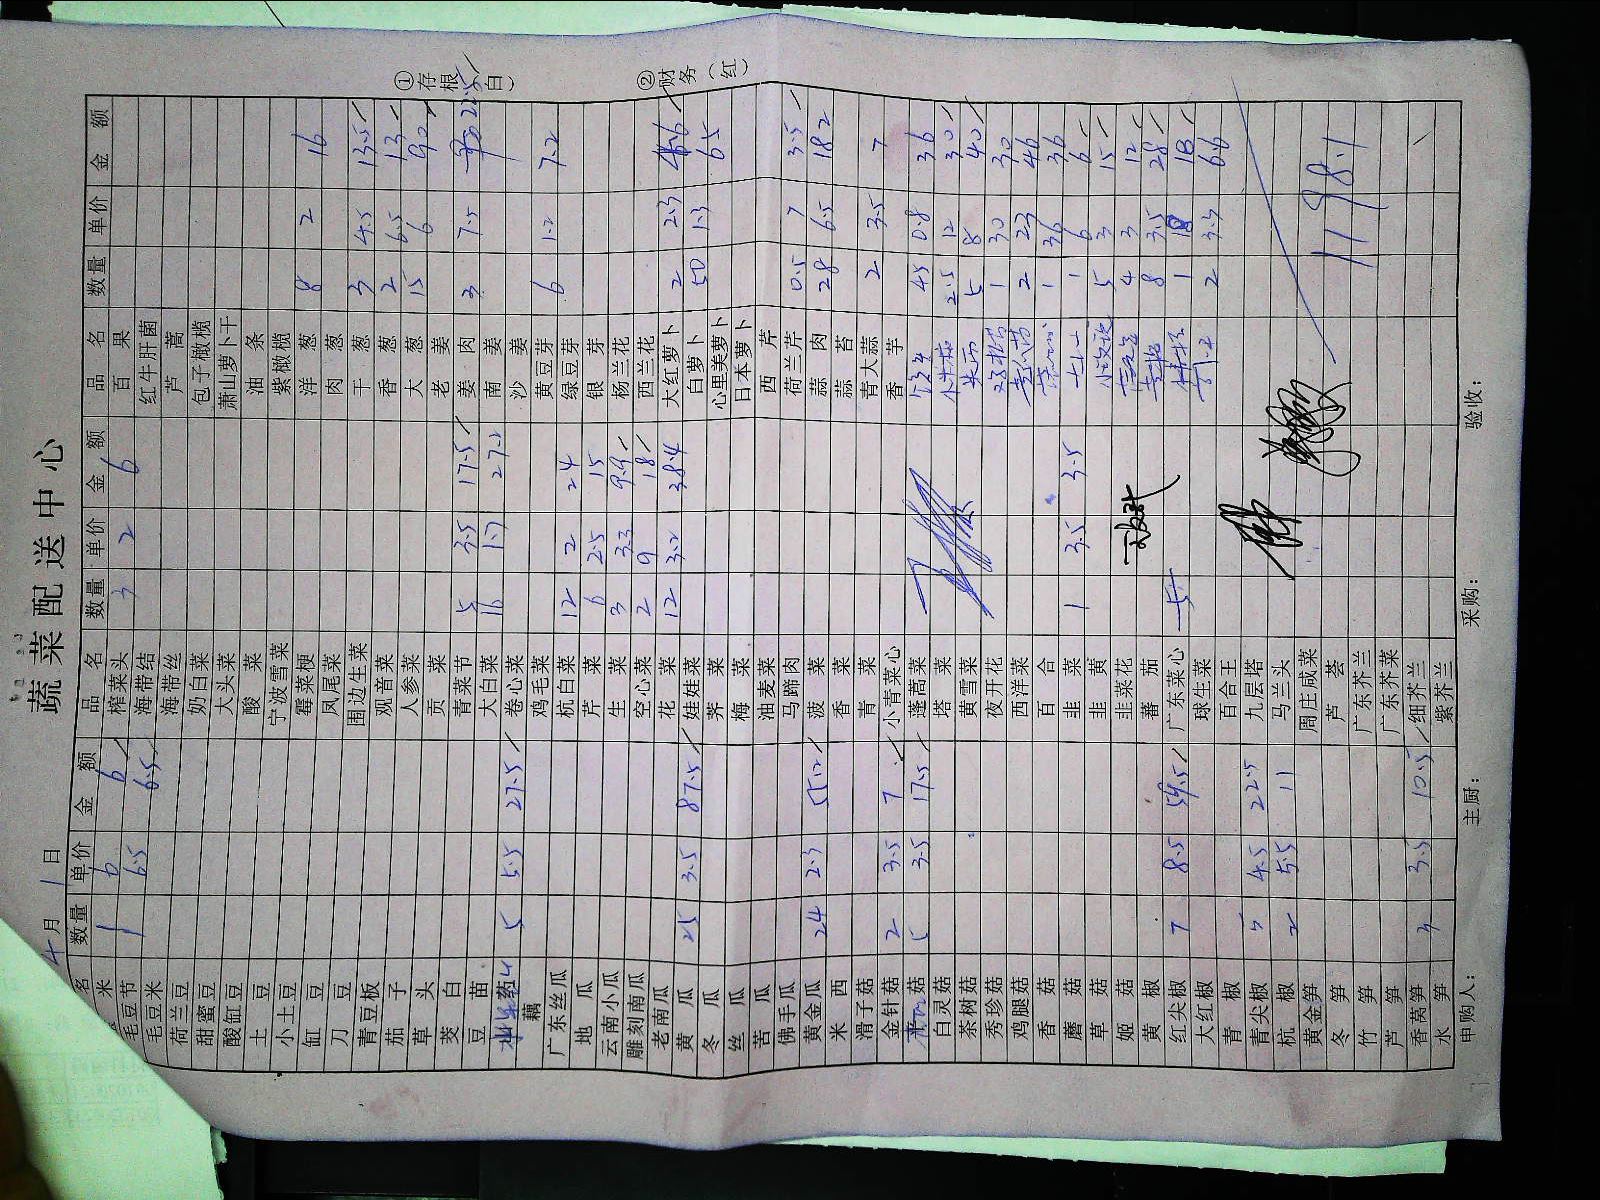 蔬菜配送中心
4月1日
①存根(白) ②财务(红)
名 数量 单价 金额 品名 数量 单价 金额 品名 数量 单价 金额
米 1 6 6 榨菜头 3 2 6 百果
毛豆节 1 6.5 6.5 海带结 红牛肝菌
毛豆米 海带丝 芦蒿
荷兰豆 奶白菜 包子橄榄
甜蜜豆 大头菜 萧山萝卜干
酸缸豆 酸菜 油条
土豆 宁波雪菜 紫橄榄
小土豆 霉菜梗 洋葱 8 2 16
缸豆 凤尾菜 肉葱
刀豆 围边生菜 干葱 3 4.5 13.5
青豆板 观音菜 香葱 2 6.5 13
茄子 人参菜 大葱 15 6 90
草头 贡菜 老姜
茭白 青菜节 5 3.5 17.5 姜肉 3 7.5 22.5
豆苗 大白菜 16 1.7 27.2 南姜
5 5.5 27.5 卷心菜 沙姜
藕 鸡毛菜 黄豆芽 6 1.2 7.2
广东丝瓜 杭白菜 12 2 24 绿豆芽
地瓜 芹菜 6 2.5 15 银芽
云南小瓜 生菜 3 3.3 9.9 杨兰花
雕刻南瓜 空心菜 2 9 18 西兰花
老南瓜 花菜 12 3.2 38.4 大红萝卜 2 2.3 4.6
黄瓜 25 3.5 87.5 娃娃菜 白萝卜 50 1.3 65
冬瓜 荠菜 心里美萝卜
丝瓜 梅菜 日本萝卜
苦瓜 油麦菜 西芹
佛手瓜 马蹄肉 荷兰芹 0.5 7 3.5
黄金瓜 24 2.3 55.2 菠菜 蒜肉 28 6.5 182
米西 香菜 蒜苔
滑子菇 青菜 青大蒜 2 3.5 7
金针菇 2 3.5 7 小青菜心 香芋
菇 5 3.5 17.5 蓬蒿菜 45 0.8 36
白灵菇 塔菜 2.5 12 30
茶树菇 黄雪菜 5 8 40
秀珍菇 夜开花 1 30 30
鸡腿菇 西洋菜 2 23 46
香菇 百合 1 36 36
蘑菇 韭菜 1 3.5 3.5 1 6 6
草菇 韭黄 5 3 15
姬菇 韭菜花 4 3 12
黄椒 蕃茄 8 3.5 28
红尖椒 7 8.5 59.5 广东菜心 1 18 18
大红椒 球生菜 2 3.3 6.6
青椒 百合王
青尖椒 5 4.5 22.5 九层塔
杭椒 2 5.5 11 马兰头
黄金笋 周庄咸菜
冬笋 芦荟 1198.1
竹笋 广东芥兰
芦笋 广东芥菜
香莴笋 3 3.5 10.5 细芥兰
水笋 紫芥兰
申购人： 主厨： 采购： 验收：